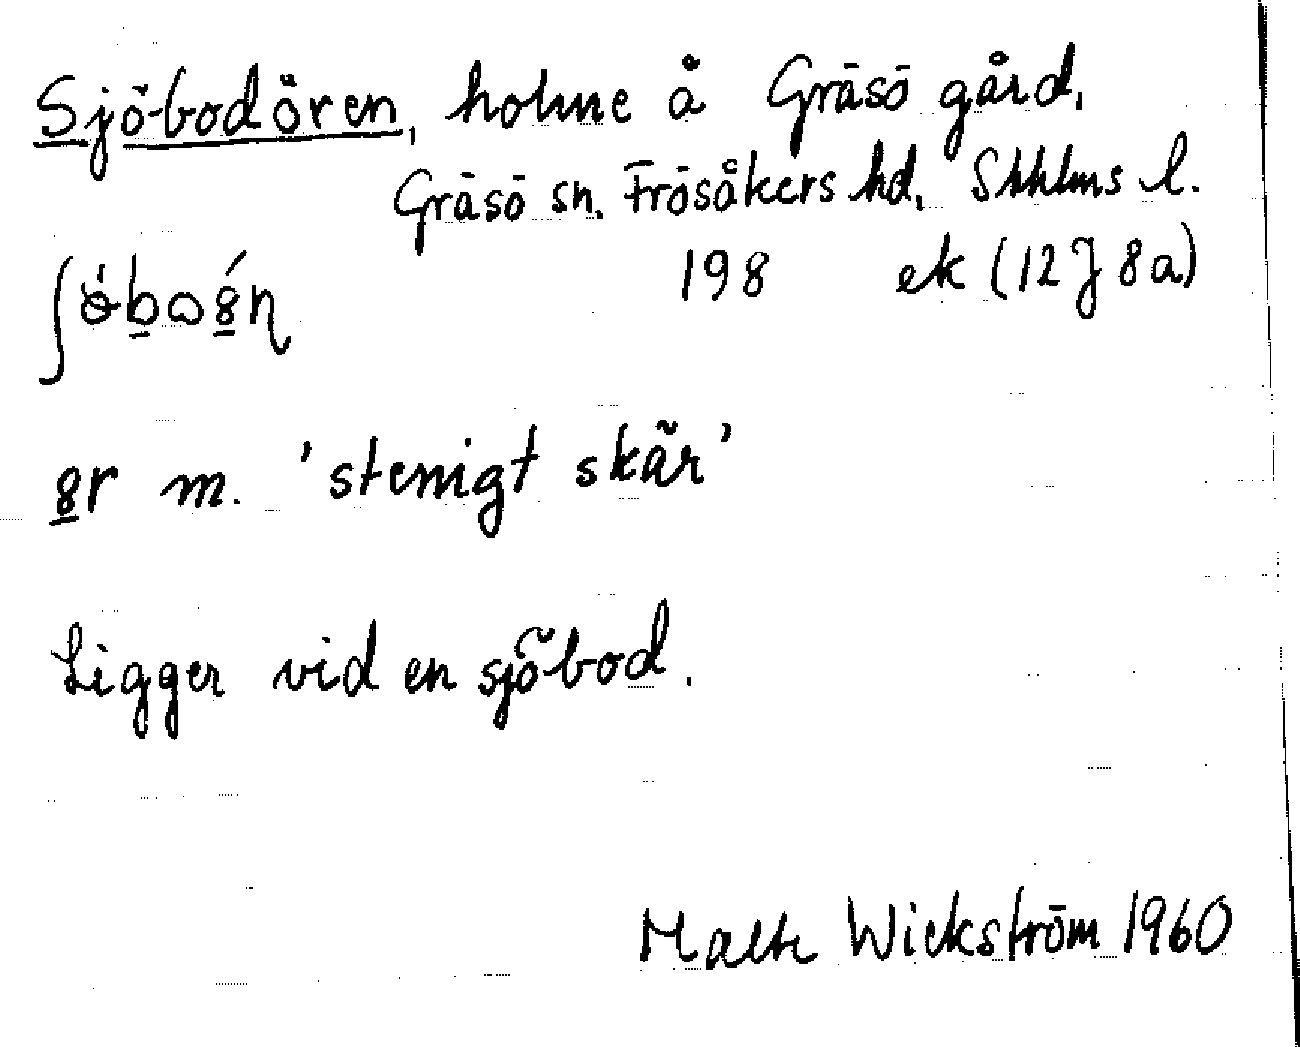 Sjöbodören, holme å Gräsö gård,
Gräsö sn. Frösåkers hd, Sthlms l.
198 ek (12J 8a)
m. 'stenigt skär'
Ligger vid en sjöbod.
Malte Wickström 1960